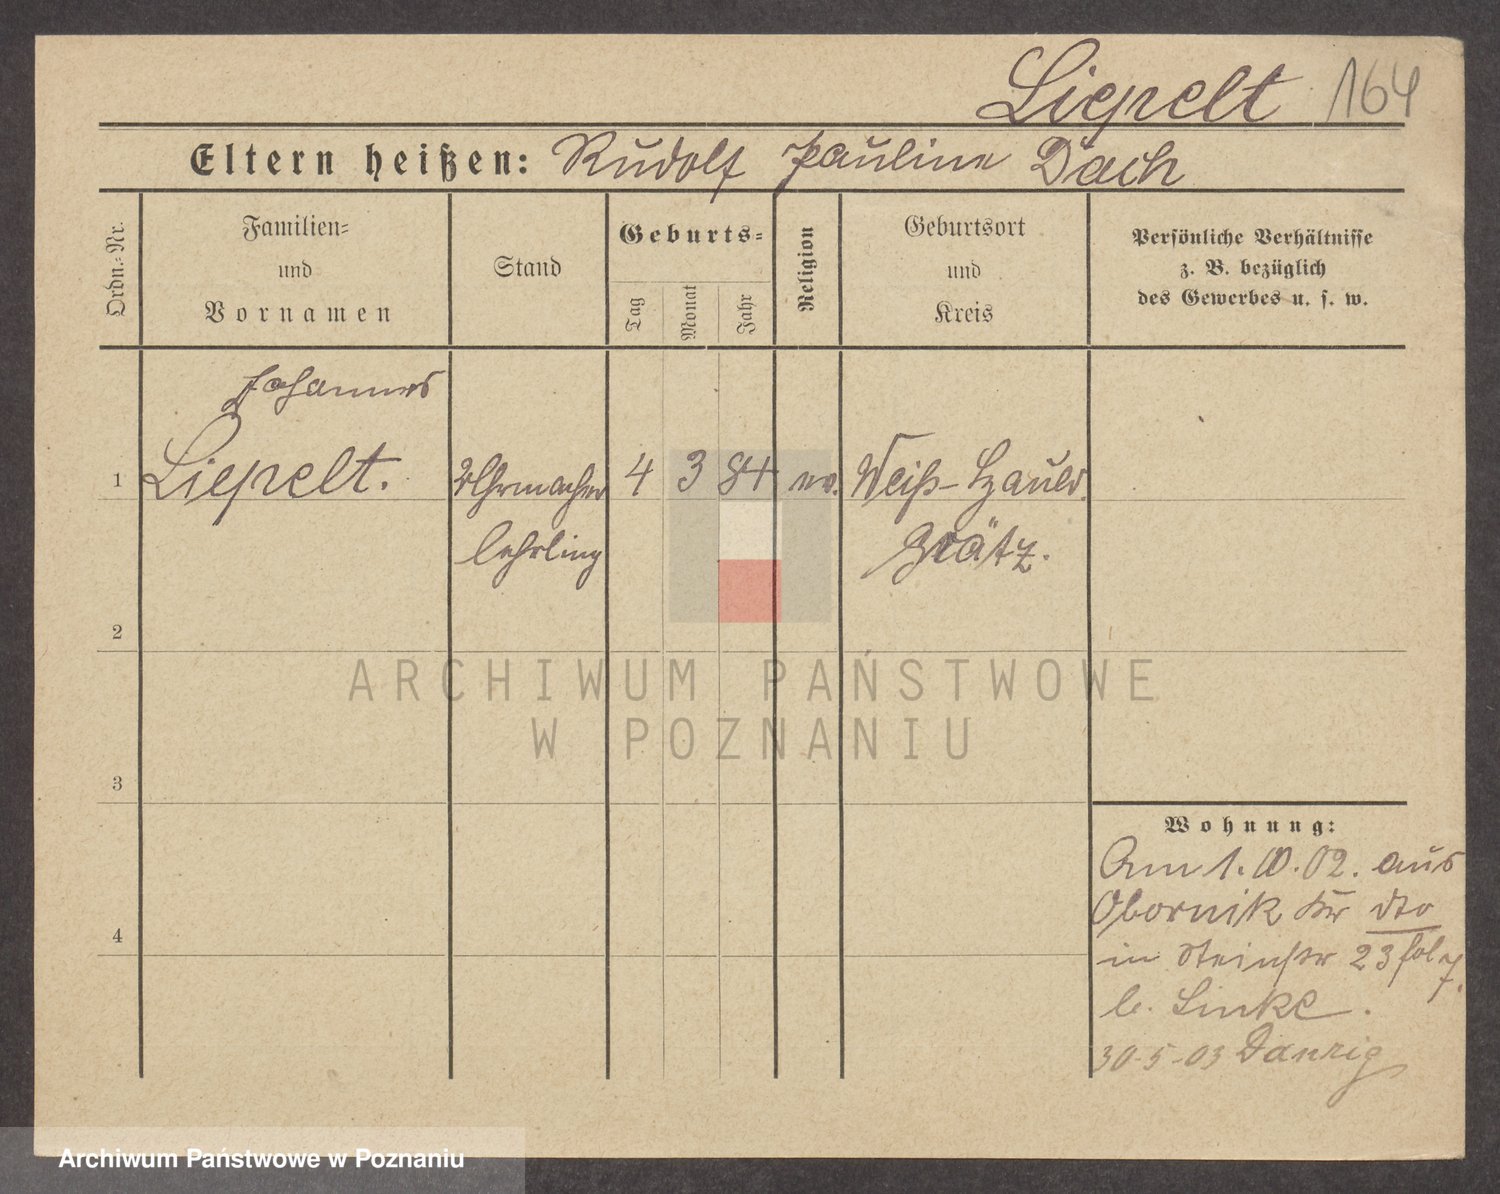 Liepelt 164
Eltern heißen: Rudolf Pauline Dach
Ordn.-Nr.
Familien-
und
Vornamen
Stand
Geburts-
Tag
Monat
Jahr
Religion
Geburtsort
und
Kreis
Persönliche Verhältnisse
z. B. bezüglich
des Gewerbes u. s. w.
Johannes
1 Liepelt. Uhrmacher 4 3 84 ev. Weiß-
lehrling Grätz.
2
3
4
Wohnung:
Am 1. 10. 02. aus
Obornik Kr dto
in Steinstr 23
b. Linke.
30-5-03 Danzig
ARCHIWUM PAŃSTWOWE
W POZNANIU
Archiwum Państwowe w Poznaniu